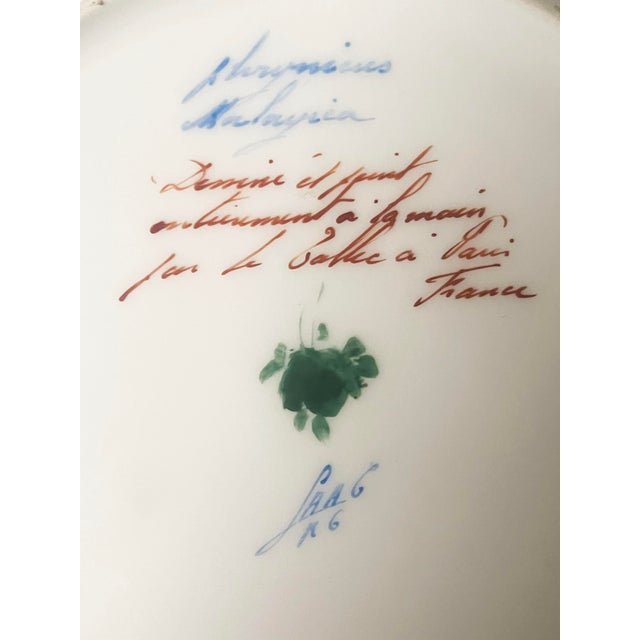 phrynicus
Malagrica
Dessiné et peint
entièrement à la main
par Le Tallec à Paris
France